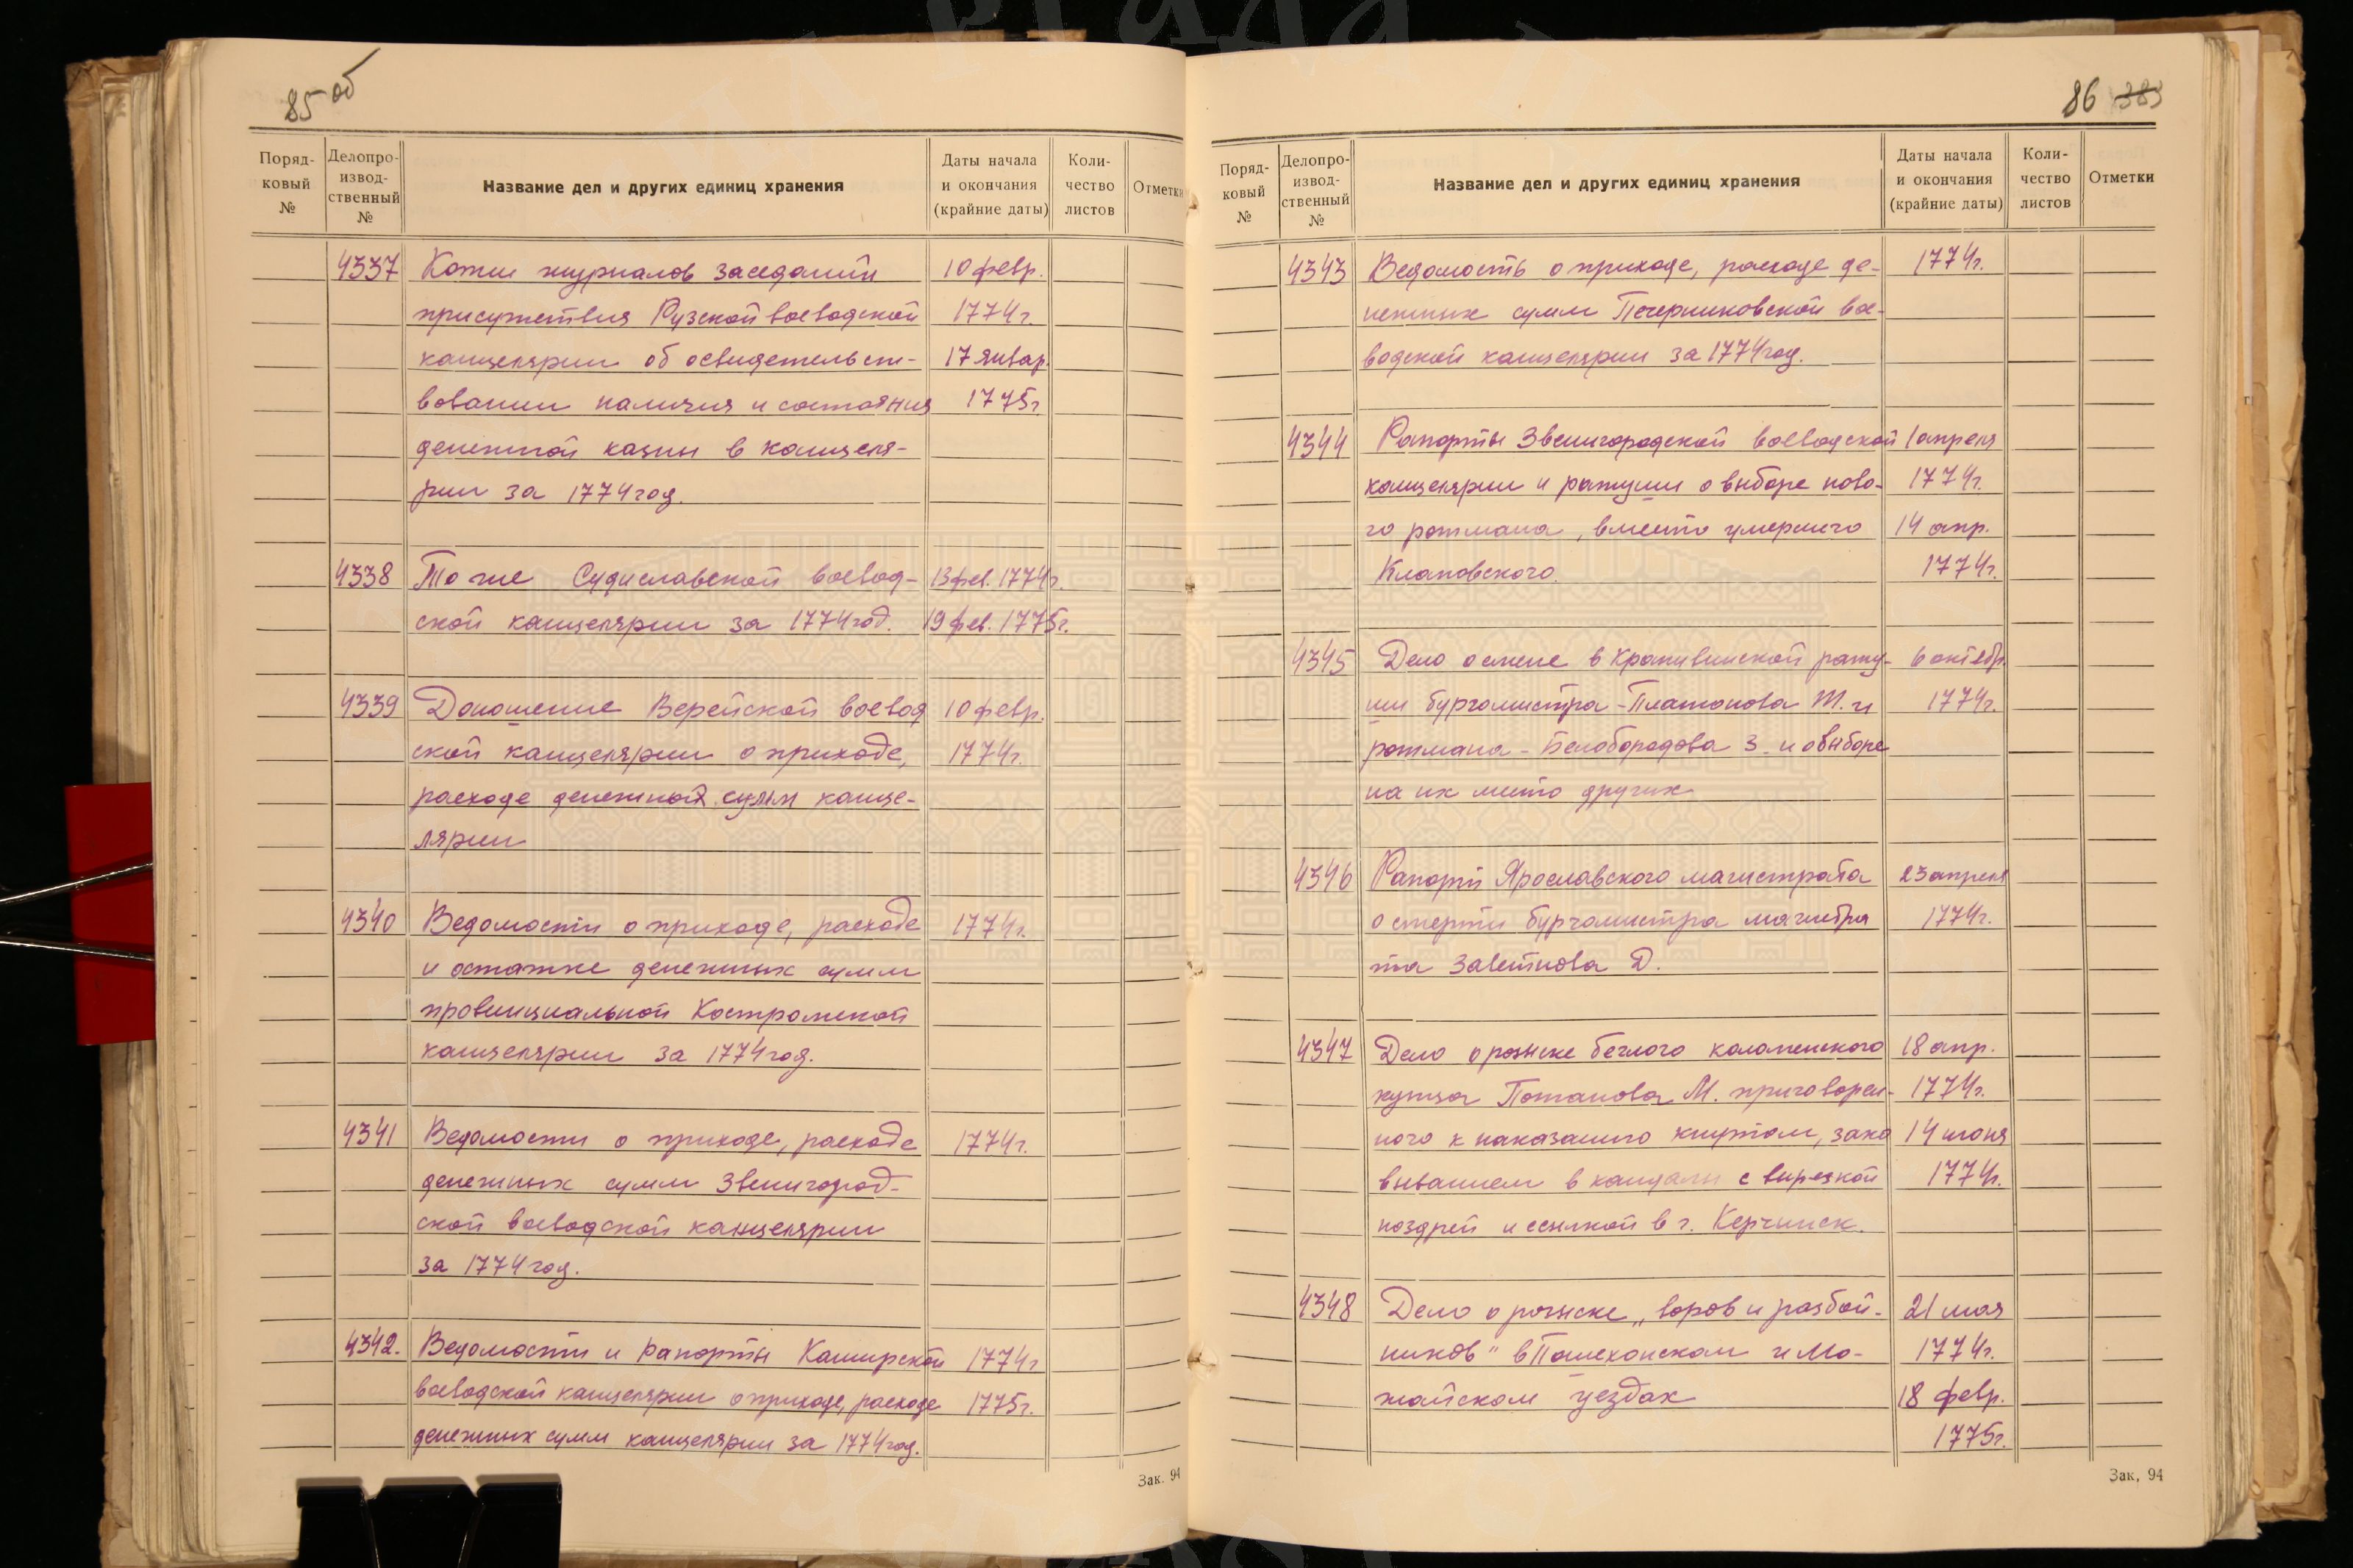 85 об
Поряд-
ковый
№
Делопро-
извод-
ственный
№
Название дел и других единиц хранения
Даты начала
и окончания
(крайние даты)
Коли-
чество
листов
Отметки
4337 Копии журналов заседаний 10 февр.
присутствия Рузской воеводской 1774г.
канцелярии об освидетельст- 17 январ.
вовании наличия и состояния 1775г
денежной казны в канцеля-
рии за 1774 год.
4338 То же Судиславской воевод- 13 фев. 1774г.
ской канцелярии за 1774 год. 19 фев. 1775г.
4339 Доношение Верейской воевод 10 февр.
ской канцелярии о приходе, 1774г.
расходе денежных сумм канце-
лярии
4340 Ведомости о приходе, расходе 1774г.
и остатке денежных сумм
провинциальной Костромской
канцелярии за 1774 год.
4341 Ведомости о приходе, расходе 1774г.
денежных сумм Звенигород-
ской воеводской канцелярии
за 1774 год.
4342. Ведомости и рапорты Каширской 1774г
воеводской канцелярии о приходе, расходе 1775г.
денежных сумм канцелярии за 1774 год.
Зак. 94
86 383
Поряд-
ковый
№
Делопро-
извод-
ственный
№
Название дел и других единиц хранения
Даты начала
и окончания
(крайние даты)
Коли-
чество
листов
Отметки
4343 Ведомость о приходе, расходе де- 1774г.
нежных сумм Печерниковской вое-
водской канцелярии за 1774 год.
4344 Рапорты Звенигородской воеводской 1 апреля
канцелярии и ратуши о выборе ново- 1774г.
го ратмана, вместо умершего 14 апр.
Клаповского. 1774г.
4345 Дело о смене в Крапивинской рату- 6 октябр.
ши бургомистра - Платонова Т. и 1774г.
ратмана - Белобородова З. и о выборе
на их место других
4346 Рапорт Ярославского магистрата 23 апреля
о смерти бургомистра магистра 1774г.
та Заветнова Д.
4347 Дело о розыске беглого коломенского 18 апр.
купца Потапова М. приговорен- 1774г.
ного к наказанию кнутом, зако 14 июня
выванием в кандалы с вырезкой 1774г.
ноздрей и ссылкой в г. Керчинск.
4348 Дело о розыске „воров и разбой- 21 мая
ников" в Пошехонском и Мо- 1774г.
жайском уездах 18 февр.
1775г.
Зак, 94